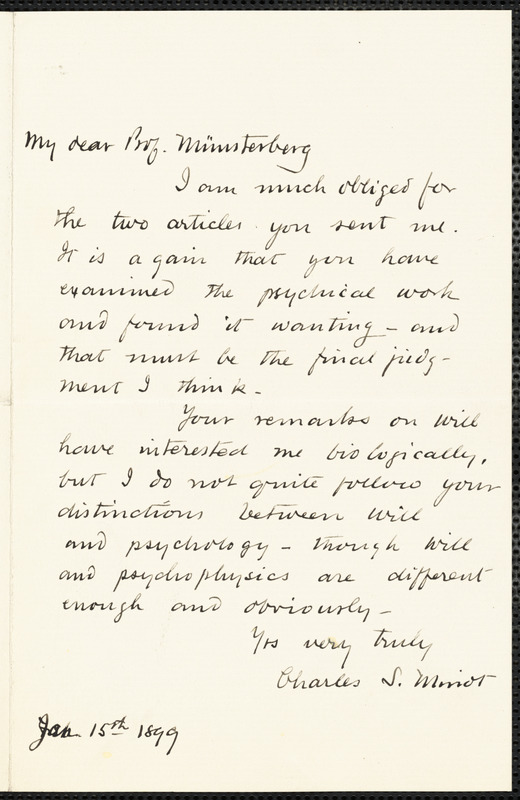 My dear Prof. Münsterberg
I am much obliged for
the two articles you sent me.
It is a gain that you have
examined the psychical work
and found it wanting – and
that must be the final judg-
ment I think –
Your remarks on will
have interested me biologically,
but I do not quite follow your
distinctions between will
and psychology – though will
and psychophysics are different
enough and obviously –
Yrs very truly
Charles S. Minot
Jan. 15th 1899